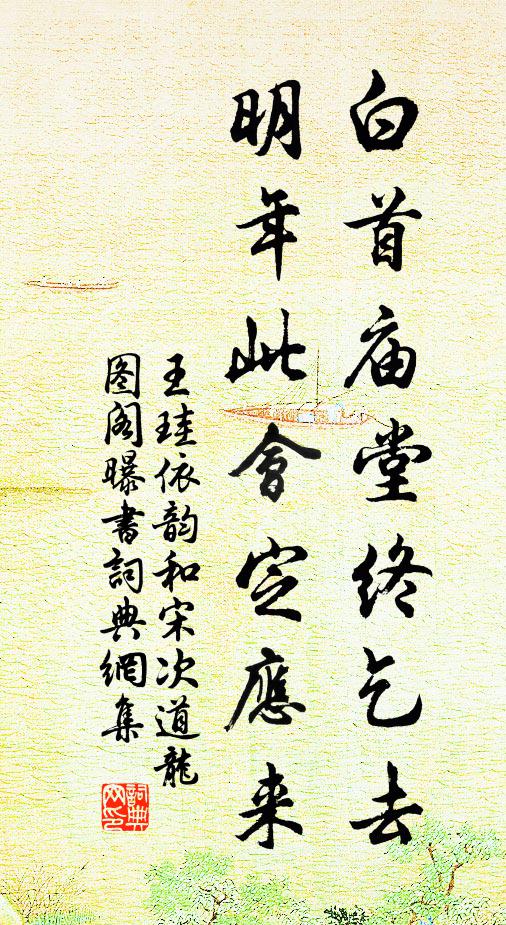 白首庙堂终乞去
明年此會定應来
王珪依韵和宋次道龍
图阁曝書詞典網集
詞典网印